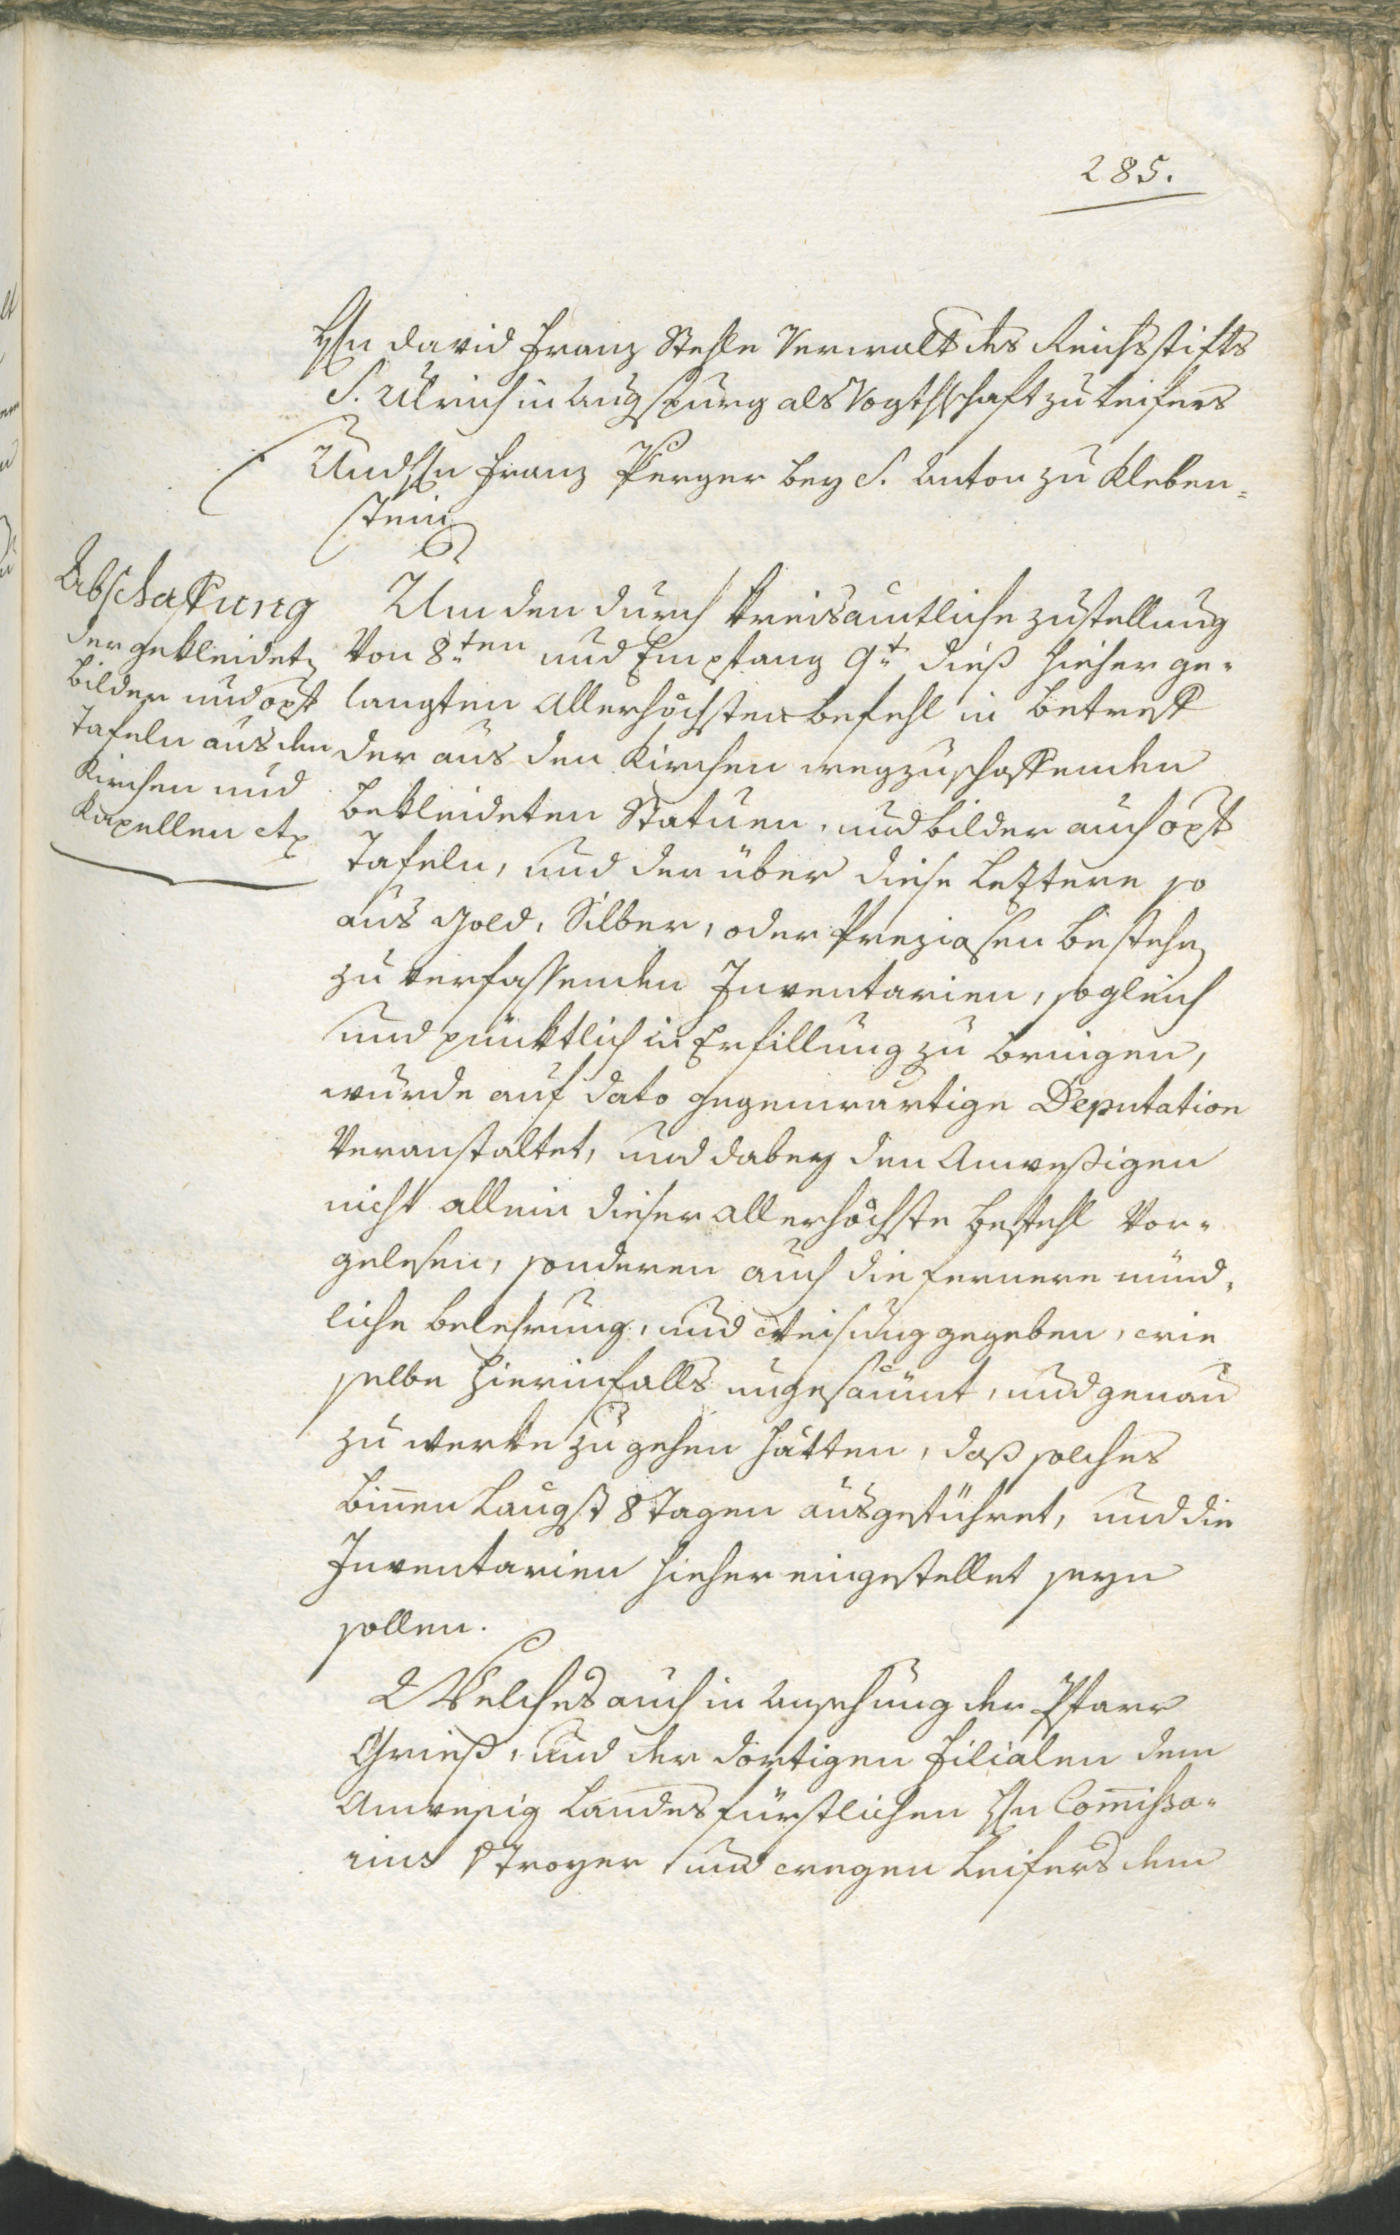 285.
Hn David Franz Stehle Verwalt des Reichsstifts
S. Ulrich in Augspurg als Vogthschaft zu Leifers
Und Hn Franz Perger bey S. Anton zu Kleben-
stein
Abschaffung
der gekleideten
Bilder und opfer
Tafeln aus den
Kirchen und
Kapellen etc
Um den durch kreisamtliche Zustellung
Von 8ten und Empfang 9t dieß hieher ge-
langten Allerhöchsten befehl in Betreff
der aus den Kirchen wegzuschaffenden
bekleideten Statuen, und bilder auch opfer
Tafeln, und der über diese Leztere so
aus Gold, Silber, oder Preziosen bestehen
zu verfassenden Inventarien, sogleich
und pünktlich in Erfillung zu bringen,
wurde auf dato gegenwärtige Deputation
Veranstaltet, und dabey den Anweßigen
nicht allein dieser allerhöchste Befehl Vor-
gelesen, sonderen auch die fernere münd-
liche belehrung, und Weisung gegeben, wie
selbe hierinfalls ungesäumt, und genau
zu werke zu gehen hätten, daß solches
binnen Längst 8 Tagen ausgeführet, und die
Inventarien hieher eingestellet seyn
sollen.
Welches auch in Ansehung der Pfarr
Grieß, und der dortigen Filialen dem
Anwesig Landesfürstlichen Hn Commißa-
rius Stroyer und wegen Leifers dem